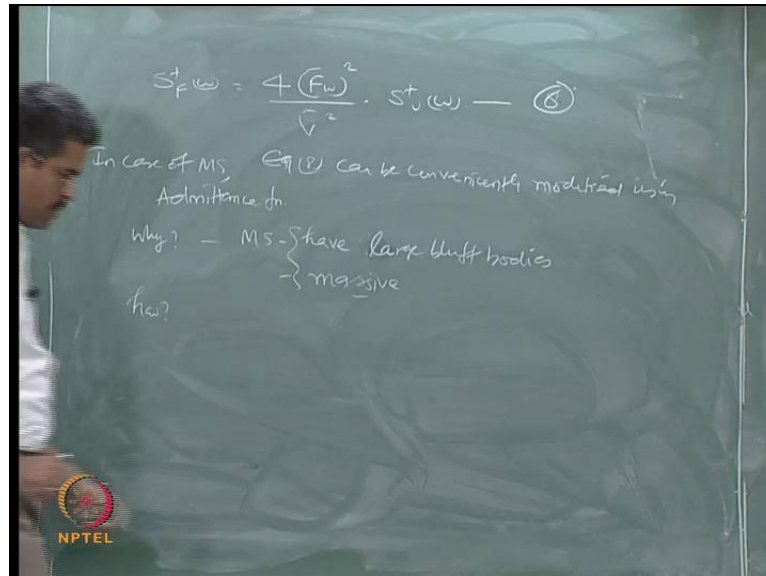 S⁺_F(ω) = 4(F̄w)² / v̄² · S⁺_υ(ω) — ⑧
In case of MS, Eq (8) can be conveniently modified using
Admittance fn.
Why? - MS - { have large bluff bodies
- { massive
how?
NPTEL